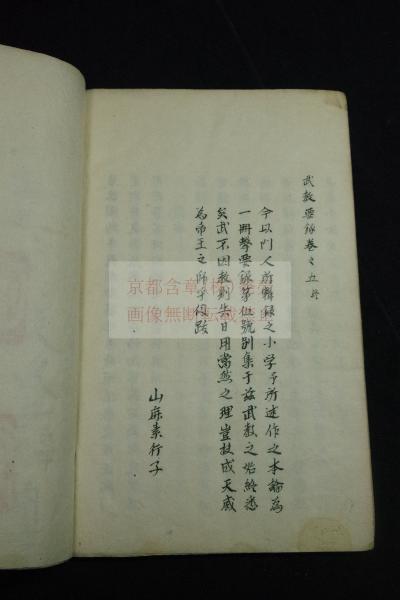 武教要録巻之五終
今以門人所輯録之小学予所述作之本論為
一冊挙要録第似號別集于茲武教之始終悉
矣武不因教則失日用當然之理豈扶成天威
為帝王之師乎何哉
山麻素行子
京都含章
画像無断転載禁止